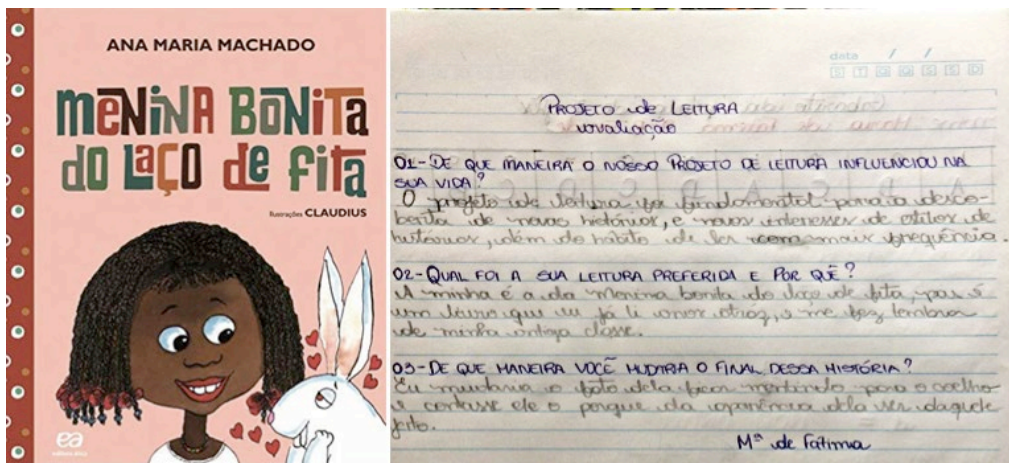 ANA MARIA MACHADO
MENINA BONITA
do LAÇO de fita
Ilustrações CLAUDIUS
ea
editora ática
data / /
S T Q Q S S D
PROJETO de LEITURA
avaliação
01- DE QUE MANEIRA O NOSSO PROJETO DE LEITURA INFLUENCIOU NA
SUA VIDA?
O projeto de leitura foi fundamental para a desco-
berta de novas histórias, e novos interesses de estilos de
histórias, além do hábito de ler com mais frequência.
02- QUAL FOI A SUA LEITURA PREFERIDA E POR QUÊ?
A minha é a da Menina bonita do laço de fita, pois é
um livro que eu já li anos atrás, e me fez lembrar
de minha antiga classe.
03- DE QUE MANEIRA VOCÊ MUDARIA O FINAL DESSA HISTÓRIA?
Eu mudaria o fato dela ficar mentindo para o coelho
e contasse ele o porque da aparência dela ser daquele
jeito.
Mª de Fátima